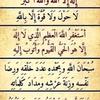 إله إلا الله والله أكبر
لَا حَوْلَ وَلَا قُوَّةَ إِلَّا بِاللَّهِ
أَسْتَغْفِرُ اللَّهَ الْعَظِيمَ الَّذِي لَا إِلَهَ
إِلَّا هُوَ الْحَيُّ الْقَيُّومُ وَأَتُوبُ إِلَيْهِ
سُبْحَانَ اللَّهِ وَبِحَمْدِهِ عَدَدَ خَلْقِهِ وَرِضَا
نَفْسِهِ وَزِنَةَ عَرْشِهِ وَمِدَادَ كَلِمَاتِهِ